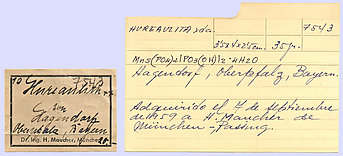 7543
Hureaulith
von
Hagendorf
Oberpfalz, Bayern
Dr. Ing. H. Maucher, München
HUREAULITA
7543
35x14x25m.
35gr.
Mn5(PO4)2|PO3(OH)|2·4H2O
Hagendorf, Oberpfalz, Bayern.
Adquirido el 7 de septiembre
de 1959 a H. Maucher de
München-Pasing.